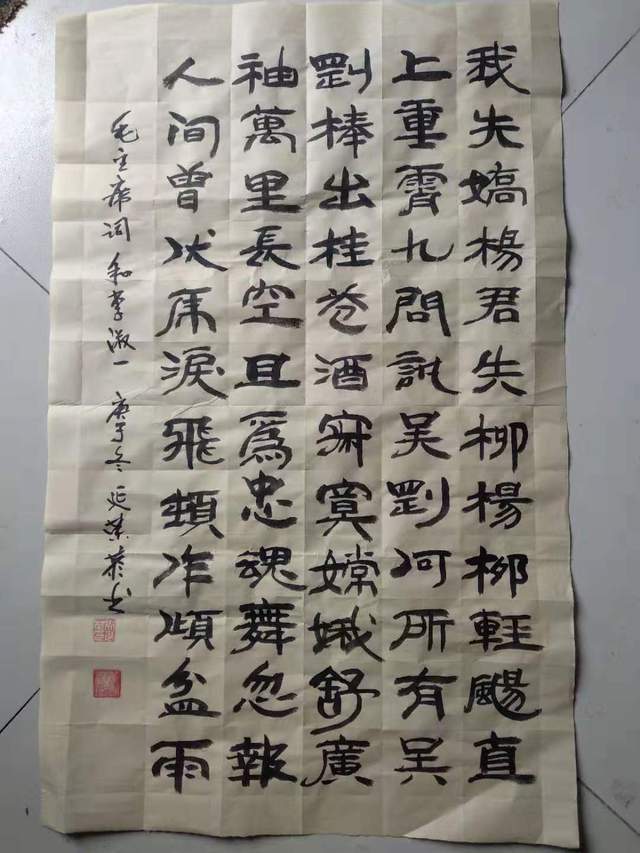 我失嬌楊君失柳楊柳輕颺直
上重霄九問訊吴剛何所有吴
剛棒出桂花酒寂寞嫦娥舒廣
袖萬里長空且爲忠魂舞忽報
人间曾伏虎淚飛頓作傾盆雨
毛主席词 和李淑一 庚子冬 延荣英书